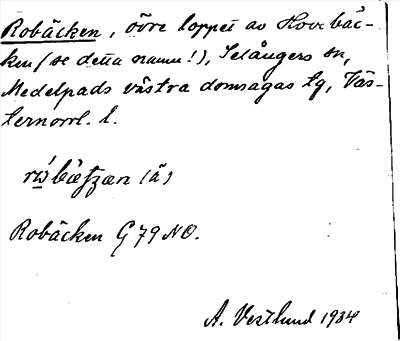 Robäcken, övre loppet av Hovebäc-
ken (se detta namn!), Selångers sn,
Medelpads västra domsagas tg, Väs-
ternorrl. l.
Robäcken G 79 NO.
A. Vestlund 1934